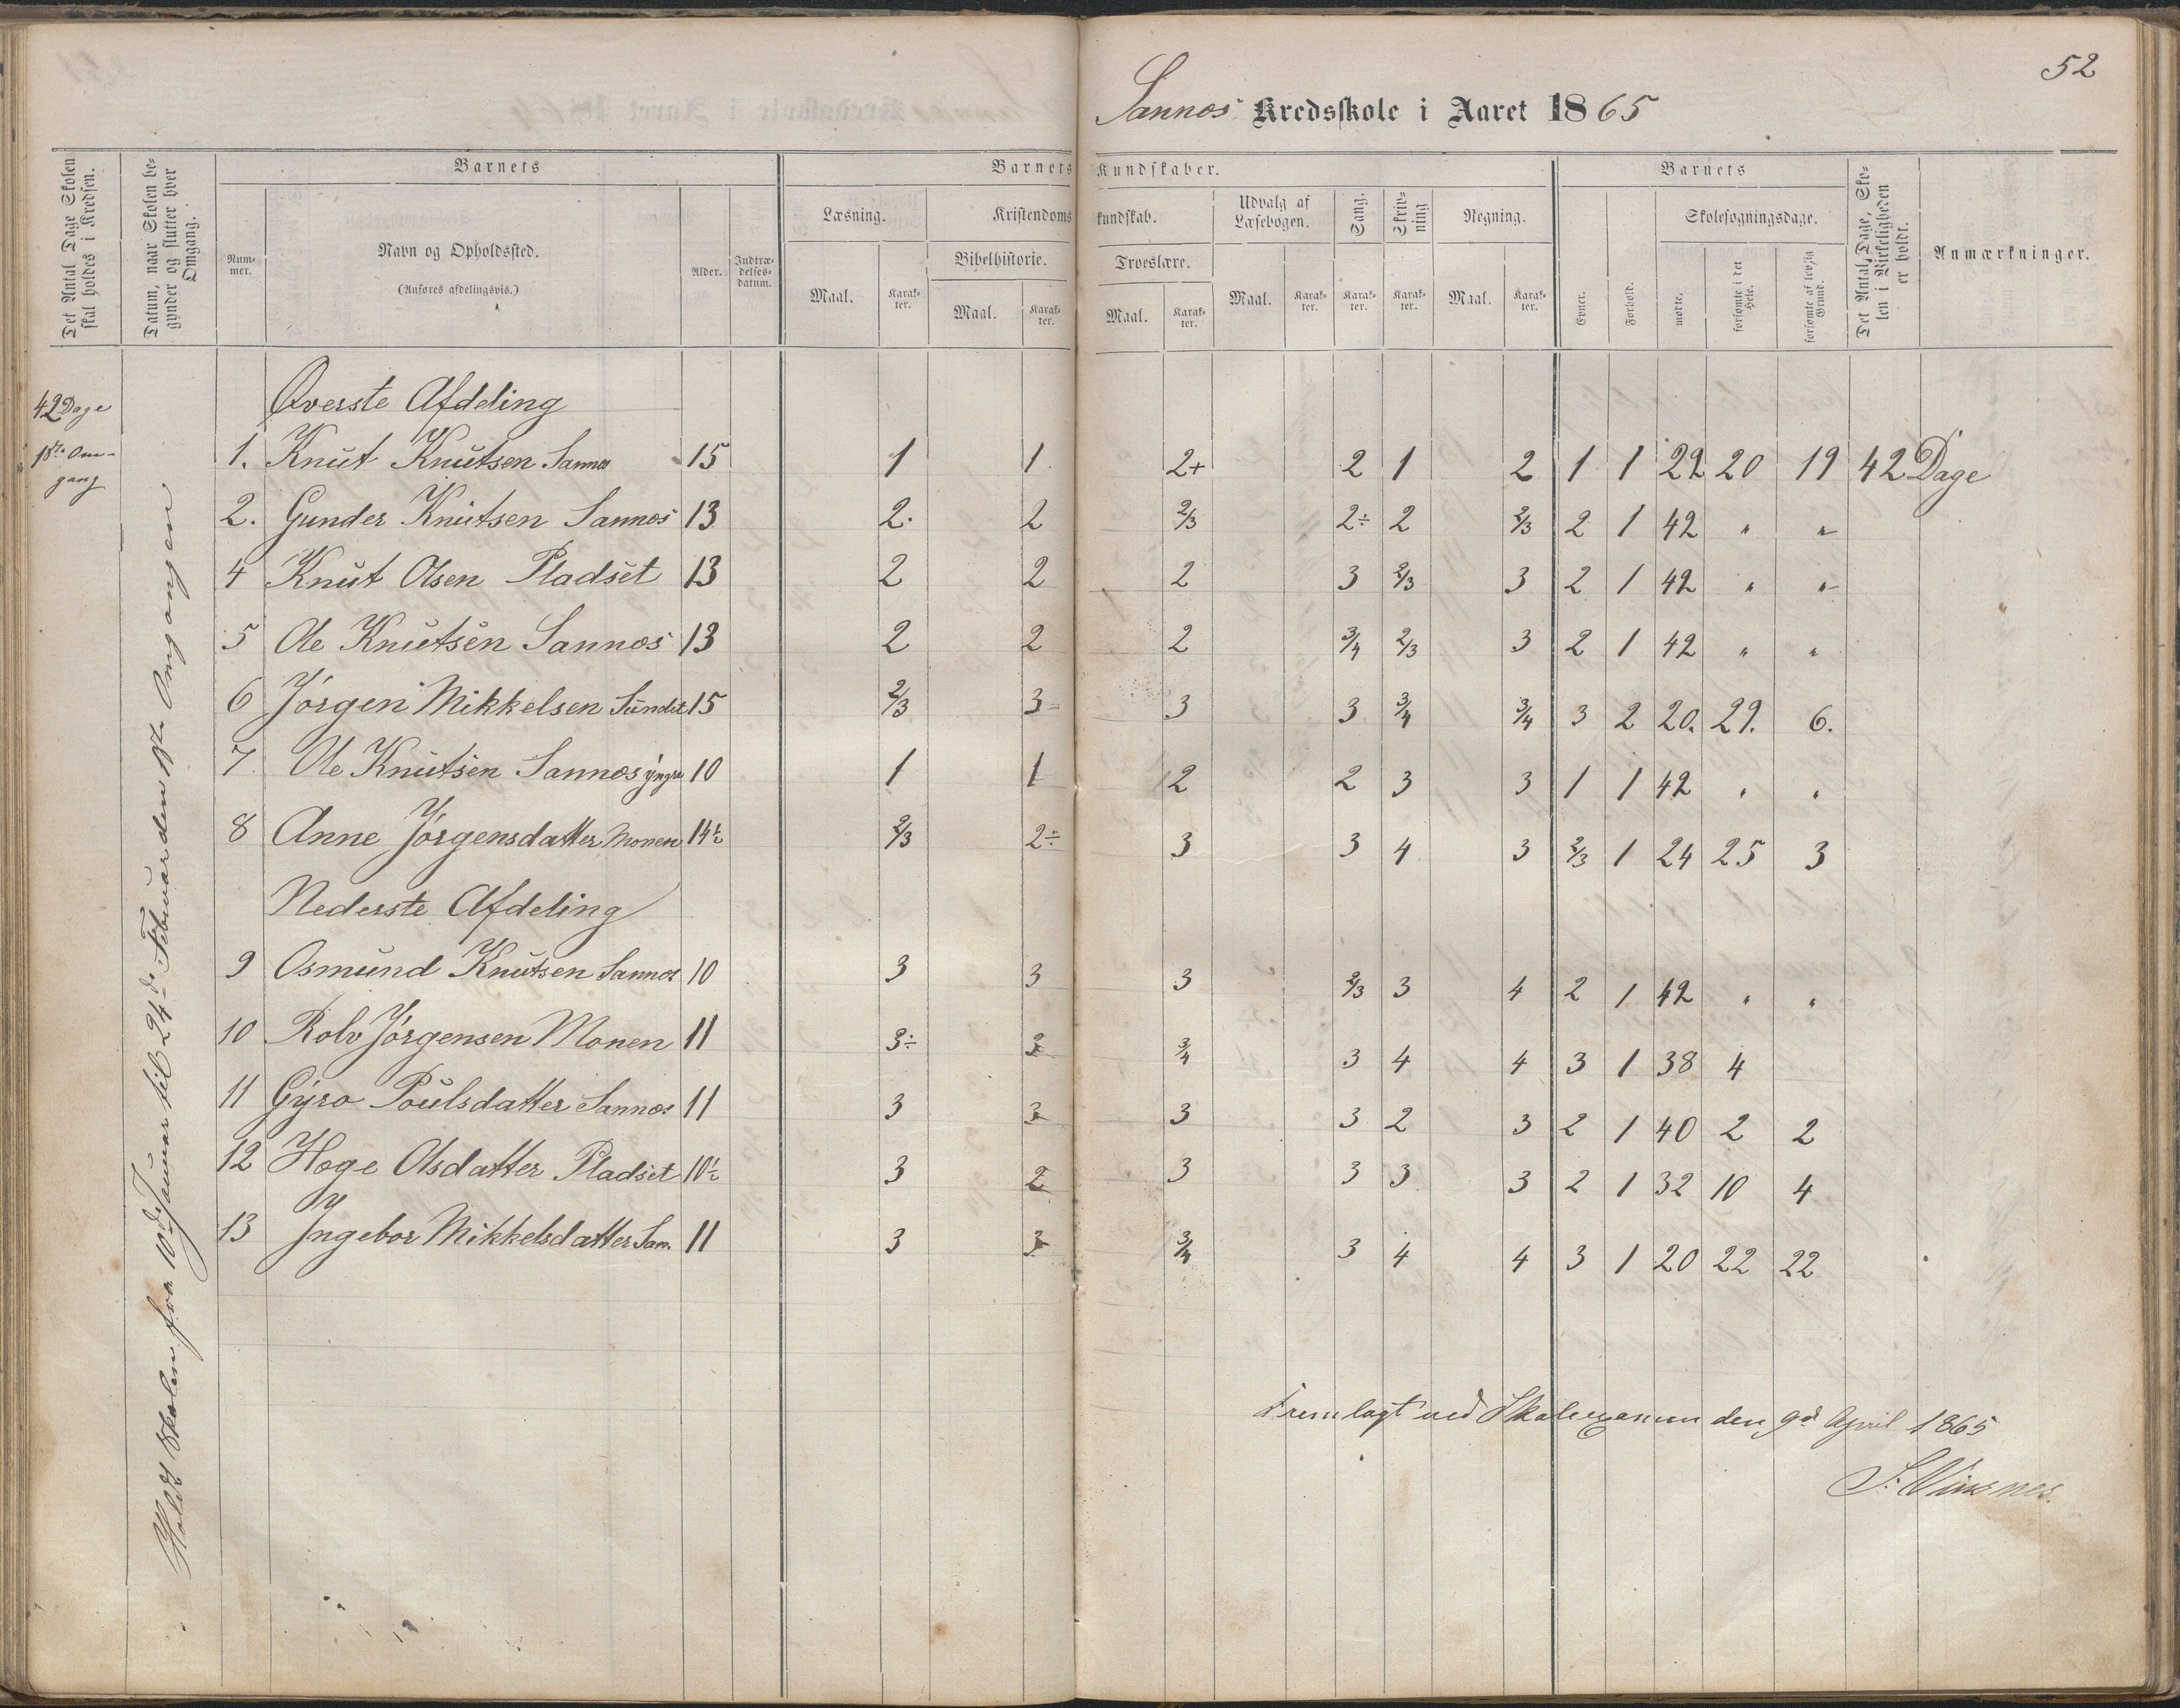 52
Sannes Kredsskole i Aaret 1865
Det Antal Dage Skolen skal holdes i Kredsen.
Datum, naar Skolen begynder og slutter hver Omgang.
Barnets
Nummer.
Navn og Opholdssted.
(Anføres afdelingsvis.)
Alder.
Indtrædelsesdatum.
Barnets Kundskaber.
Læsning.
Maal.
Karakter.
Kristendomskundskab.
Bibelhistorie.
Maal.
Karakter.
Troeslære.
Maal.
Karakter.
Udvalg af Læsebogen.
Maal.
Karakter.
Sang.
Karakter.
Skrivning
Karakter.
Regning.
Maal.
Karakter.
Barnets
Evner.
Forhold.
Skolesøgningsdage.
mødte.
forsømte i det Hele.
forsømte af lovlig Grund.
Det Antal Dage, Skolen i Virkeligheden er holdt.
Anmærkninger.
42 Dage
1ste Omgang
Holdt Skolen fra 10de Januar til 24de Februar den 1ste Omgangen
Øverste Afdeling
1. Knut Knutsen Sannes 15 1 1 2+ 2 1 2 1 1 22 20 19 42 Dage
2. Gunder Knutsen Sannes 13 2. 2 2/3 2÷ 2 2/3 2 1 42 " "
4 Knut Olsen Pladset 13 2 2 2 3 2/3 3 2 1 42 " "
5 Ole Knutsen Sannes 13 2 2 2 3/4 2/3 3 2 1 42 " "
6 Jörgen Mikkelsen Sundet 15 2/3 3 3 3 3/4 3/4 3 2 20. 29. 6.
7 Ole Knutsen Sannes yngre 10 1 1 2 2 3 3 1 1 42 " "
8 Anne Jörgensdatter Monen 14½ 2/3 2÷ 3 3 4 3 2/3 1 24 25 3
Nederste Afdeling
9 Osmund Knutsen Sannes 10 3 3 3 2/3 3 4 2 1 42 " "
10 Rolv Jörgensen Monen 11 3÷ 3 3/4 3 4 4 3 1 38 4
11 Gyro Poulsdatter Sannes 11 3 3 3 3 2 3 2 1 40 2 2
12 Hage Olsdatter Pladset 10½ 3 2 3 3 3 3 2 1 32 10 4
13 Ingebor Mikkelsdatter San. 11 3 3 3/4 3 4 4 3 1 20 22 22
Fremlagt ved Skoleexamen den 9d April 1865
S. Vinsnes.